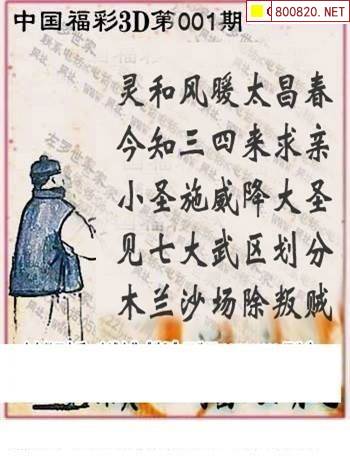 中国福彩3D第001期
800820.NET
灵和风暖太昌春
今知三四来求亲
小圣施威降大圣
见七大武区划分
木兰沙场除叛贼